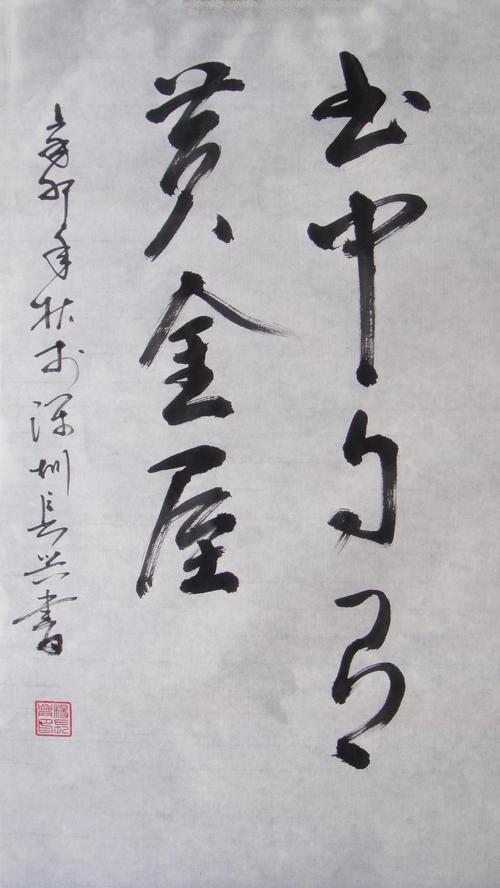 书中自有
黄金屋
辛卯年秋于深圳长兴书